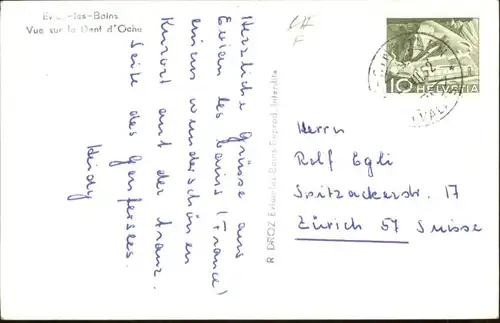 Evian-les-Bains
Vue sur la Dent d'Oche
Herzliche Grüsse aus
Evian les bains (France)
einem wunderschönen
Kurort auf der franz.
Seite des Genfersees.
R DROZ Evian-les-Bains Reprod. Interdite
10 HELVETIA
Herrn
Rolf Egli
Spitzackerstr. 17
Zürich 57 Suisse